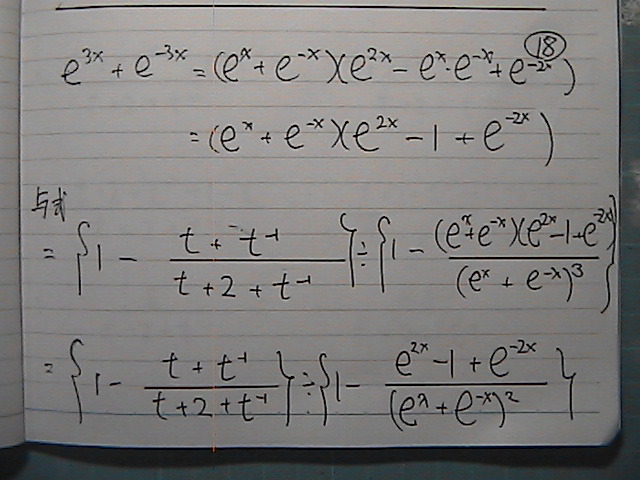 ⑱
e^{3x} + e^{-3x} = (e^x + e^{-x})(e^{2x} - e^x · e^{-x} + e^{-2x})
= (e^x + e^{-x})(e^{2x} - 1 + e^{-2x})
与式
= {1 - \frac{t + t^{-1}}{t + 2 + t^{-1}}} ÷ {1 - \frac{(e^x + e^{-x})(e^{2x} - 1 + e^{-2x})}{(e^x + e^{-x})^3}}
= {1 - \frac{t + t^{-1}}{t + 2 + t^{-1}}} ÷ {1 - \frac{e^{2x} - 1 + e^{-2x}}{(e^x + e^{-x})^2}}